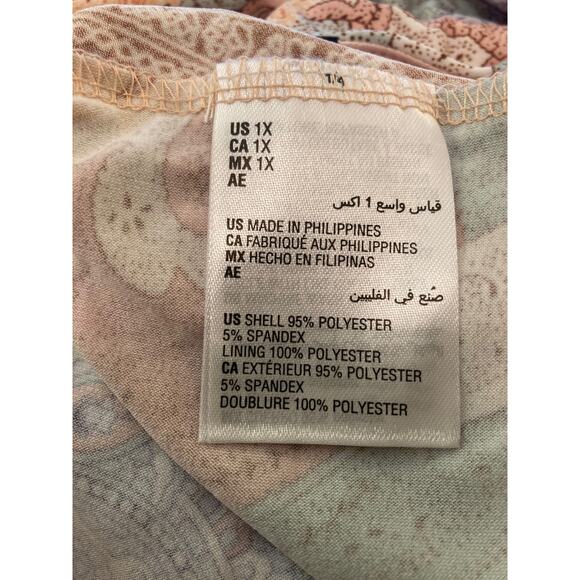 1/4
US 1X
CA 1X
MX 1X
AE
قياس واسع 1 اكس
US MADE IN PHILIPPINES
CA FABRIQUÉ AUX PHILIPPINES
MX HECHO EN FILIPINAS
AE
صُنع في الفليبين
US SHELL 95% POLYESTER
5% SPANDEX
LINING 100% POLYESTER
CA EXTÉRIEUR 95% POLYESTER
5% SPANDEX
DOUBLURE 100% POLYESTER